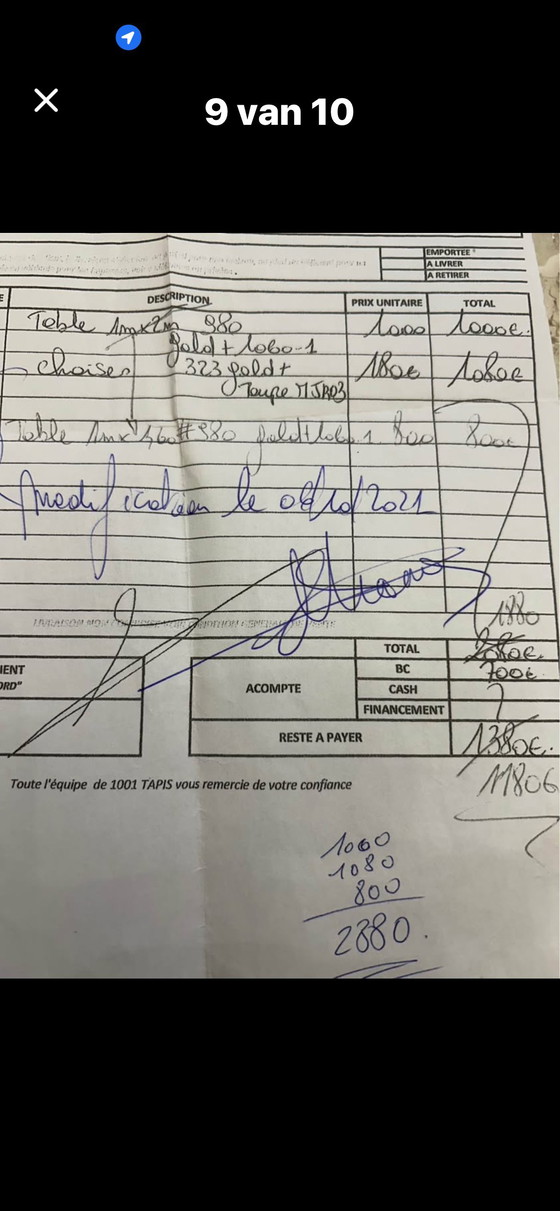 9 van 10
EMPORTEE
A LIVRER
A RETIRER
DESCRIPTION PRIX UNITAIRE TOTAL
Table 1m x 2m 980 1000 1000€
gold + lobo-1
Chaises 323 gold + 180€ 1080€
Taupe MJR03
Table 1m x #980 gold + lobo 1 800 800€
modification le 2021
1880
TOTAL
IENT BC 700€
ORD" ACOMPTE CASH
FINANCEMENT
RESTE A PAYER 1380€
1180€
Toute l'équipe de 1001 TAPIS vous remercie de votre confiance
1000
1080
800
2880.